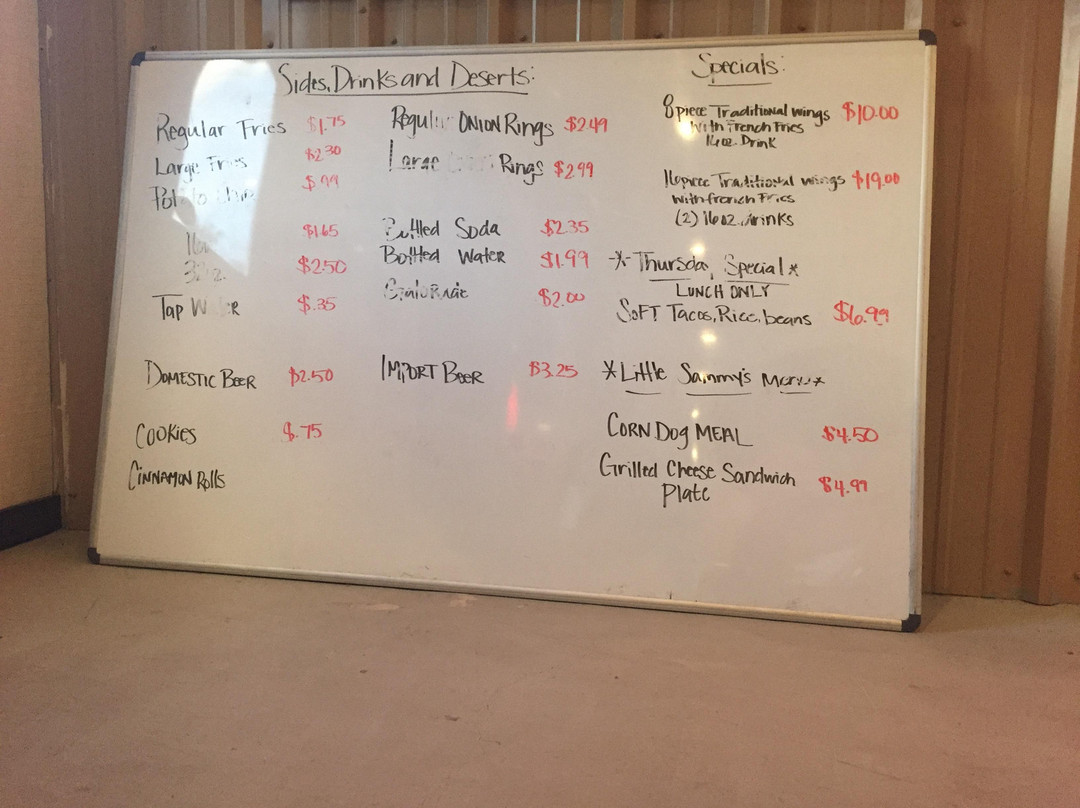 Sides, Drinks and Deserts:
Regular Fries $1.75
Large Fries $2.30
Potato Chips $.99
16oz. $1.65
32oz. $2.50
Tap Water $.35
DOMESTIC BEER $2.50
COOKIES $.75
CINNAMON Rolls
Regular ONION Rings $2.49
Large Rings $2.99
Bottled Soda $2.35
Bottled Water $1.99
Gatorade $2.00
IMPORT BEER $3.25
Specials:
8 piece Traditional wings $10.00
With French Fries
16oz. Drink
16 piece Traditional wings $19.00
with french Fries
(2) 16oz. drinks
* Thursday Special *
LUNCH ONLY
SOFT Tacos, Rice, beans $6.99
* Little Sammy's Menu *
CORN Dog MEAL $4.50
Grilled Cheese Sandwich $4.99
Plate